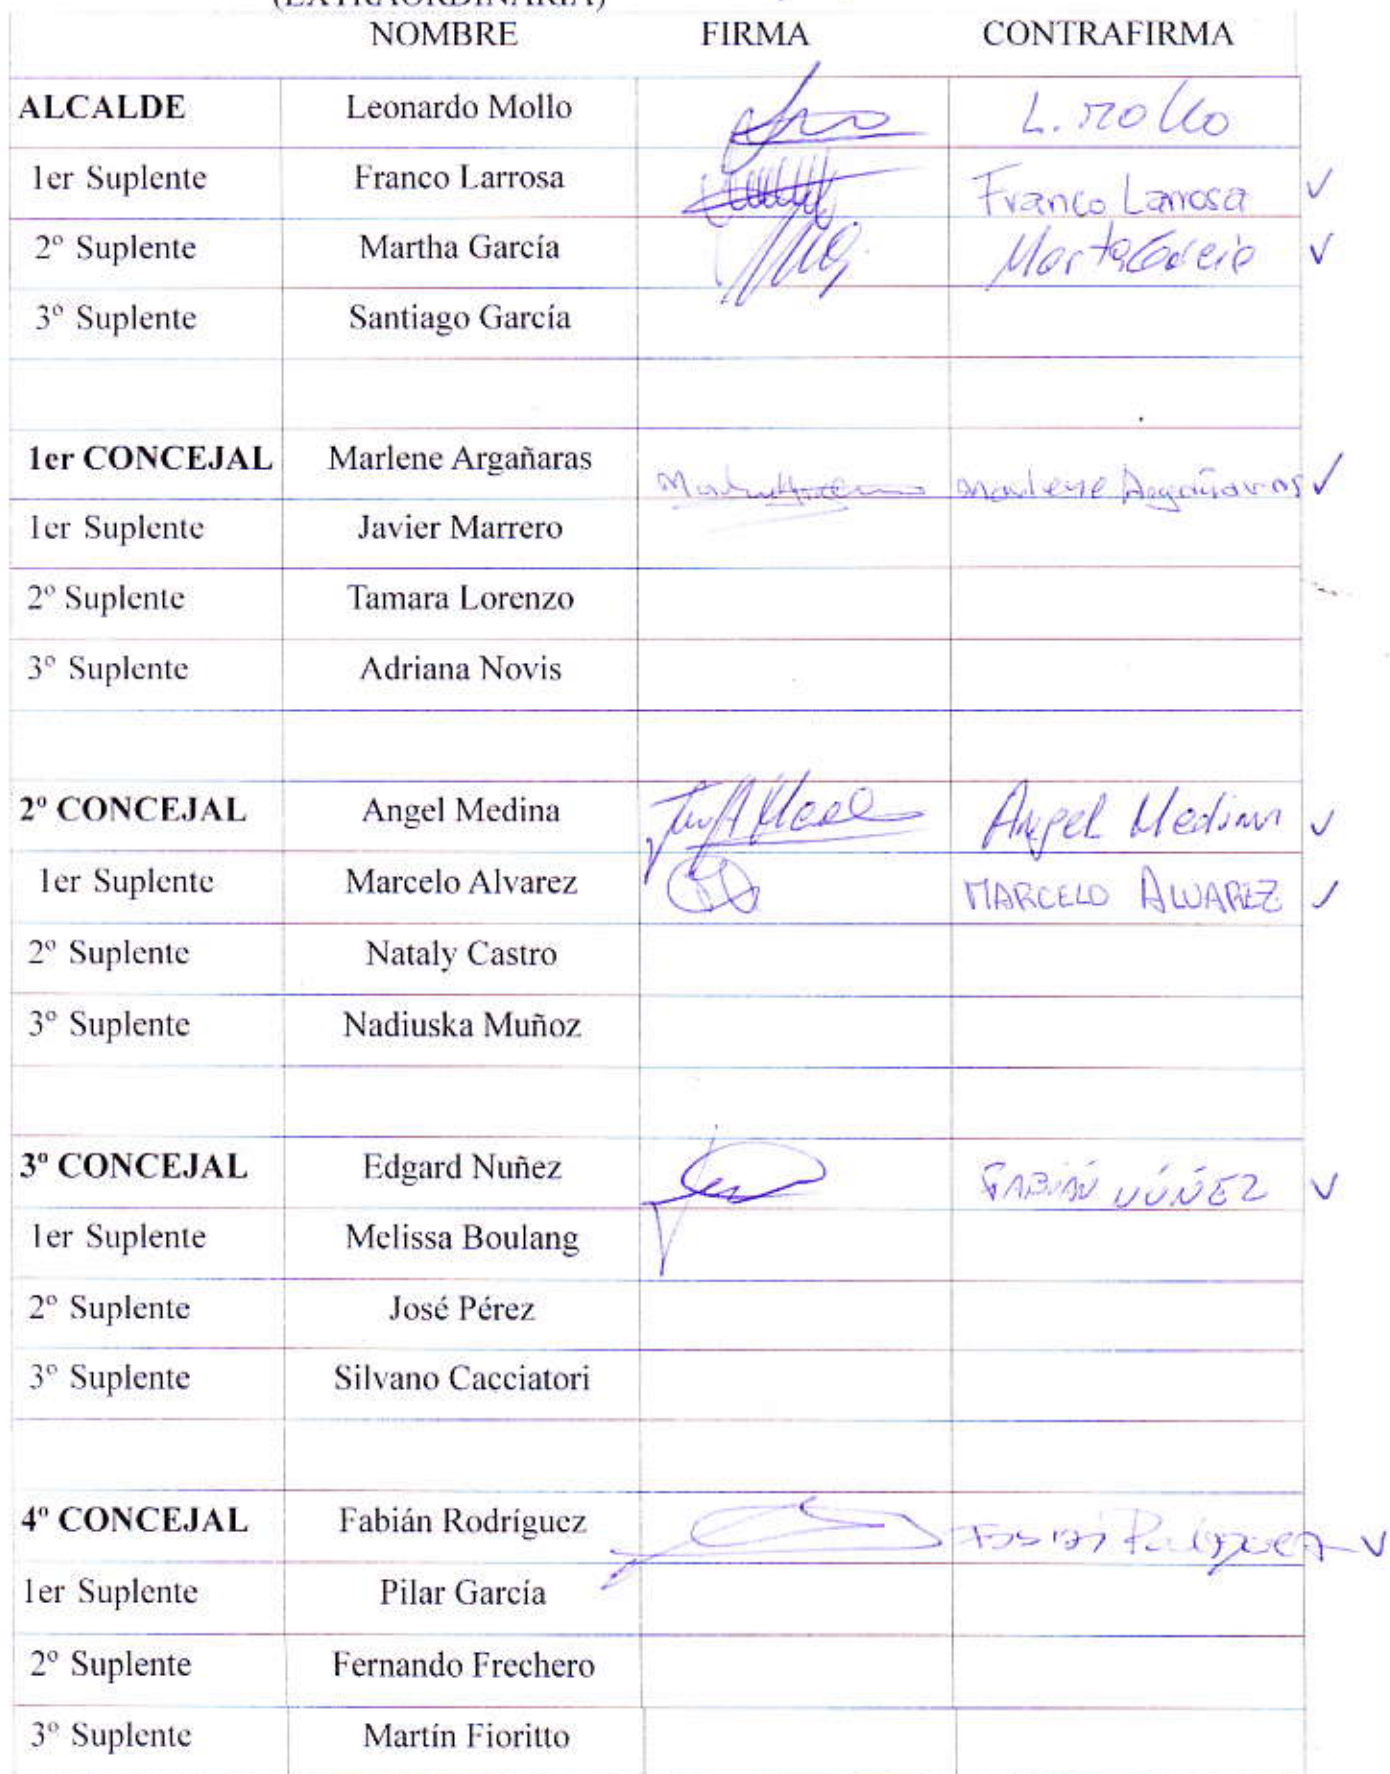 (EXTRAORDINARIA)
NOMBRE FIRMA CONTRAFIRMA
ALCALDE Leonardo Mollo L. Mollo
1er Suplente Franco Larrosa Franco Larrosa ✓
2º Suplente Martha García Marta Garcia ✓
3º Suplente Santiago García
1er CONCEJAL Marlene Argañaras Marlene Argañaras ✓
1er Suplente Javier Marrero
2º Suplente Tamara Lorenzo
3º Suplente Adriana Novis
2º CONCEJAL Angel Medina Angel Medina ✓
1er Suplente Marcelo Alvarez MARCELO ALVAREZ ✓
2º Suplente Nataly Castro
3º Suplente Nadiuska Muñoz
3º CONCEJAL Edgard Nuñez FABIÁN NÚÑEZ ✓
1er Suplente Melissa Boulang
2º Suplente José Pérez
3º Suplente Silvano Cacciatori
4º CONCEJAL Fabián Rodríguez Fabián Rodríguez ✓
1er Suplente Pilar García
2º Suplente Fernando Frechero
3º Suplente Martín Fioritto